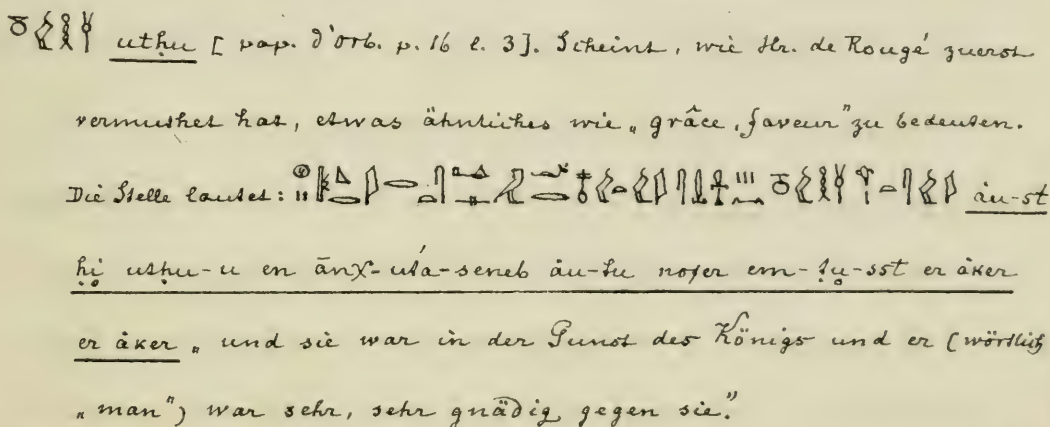 uthu [ pap. d'Orb. p. 16 l. 3]. Scheint, wie Hr. de Rougé zuerst
vermuthet hat, etwas ähnliches wie „grâce, faveur" zu bedeuten.
Die Stelle lautet: âu-st
ḥi uthu-u en ānχ-uťa-seneb âu-tu nofer em-ṭu-sst er âker
er âker „und sie war in der Gunst des Königs und er (wörtlich
„man") war sehr, sehr gnädig gegen sie."